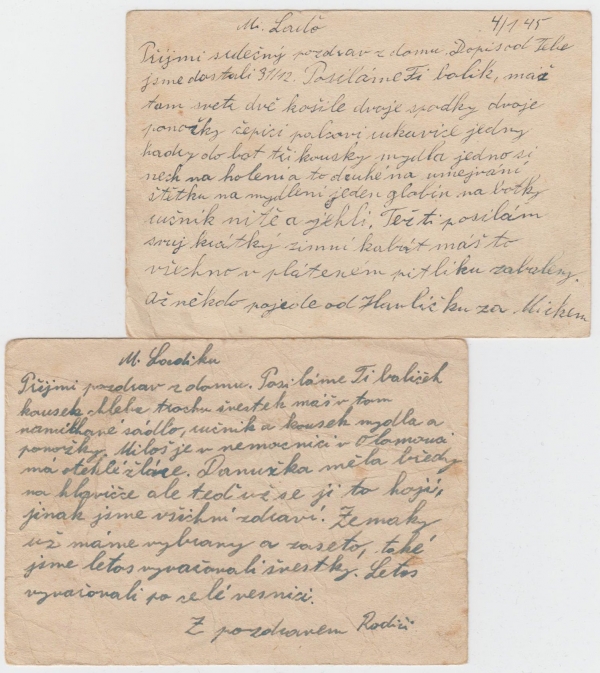 M. Laďo 4/1 45
Přijmi srdečný pozdrav z domu. Dopis od Tebe
jsme dostali 31/12. Posíláme Ti balík, máš
tam svetr dvě košile dvoje spodky dvoje
ponožky čepici palcové rukavice jedny
hadry do bot tři kousky mydla jedno si
nech na holení a to druhé na umejvání
štětku na mydlení jeden globin na botky
ručnik nitě a jehli. Též ti posílám
svuj krátký zimní kabát máš to
všechno v pláteném pitliku zabalény.
Až někdo pojede od Havlíčku za Mirkem
M. Ladiku
Přijmi pozdrav z domu. Posíláme Ti balíček
kousek chleba trochu švestek máš v tom
sádlo, ručnik a kousek mydla a
ponožky. Miloš je v nemocnici v Olomouci
má oteklé žláze. Danuška měla vředy
na hlavičce ale teď už se ji to hojí,
jinak jsme všichni zdraví. Zemaky
už máme vybrany a zaseto, také
jsme letos vyvařovali švestky. Letos
vyvařovali po celé vesnici.
Z pozdravem Rodiči